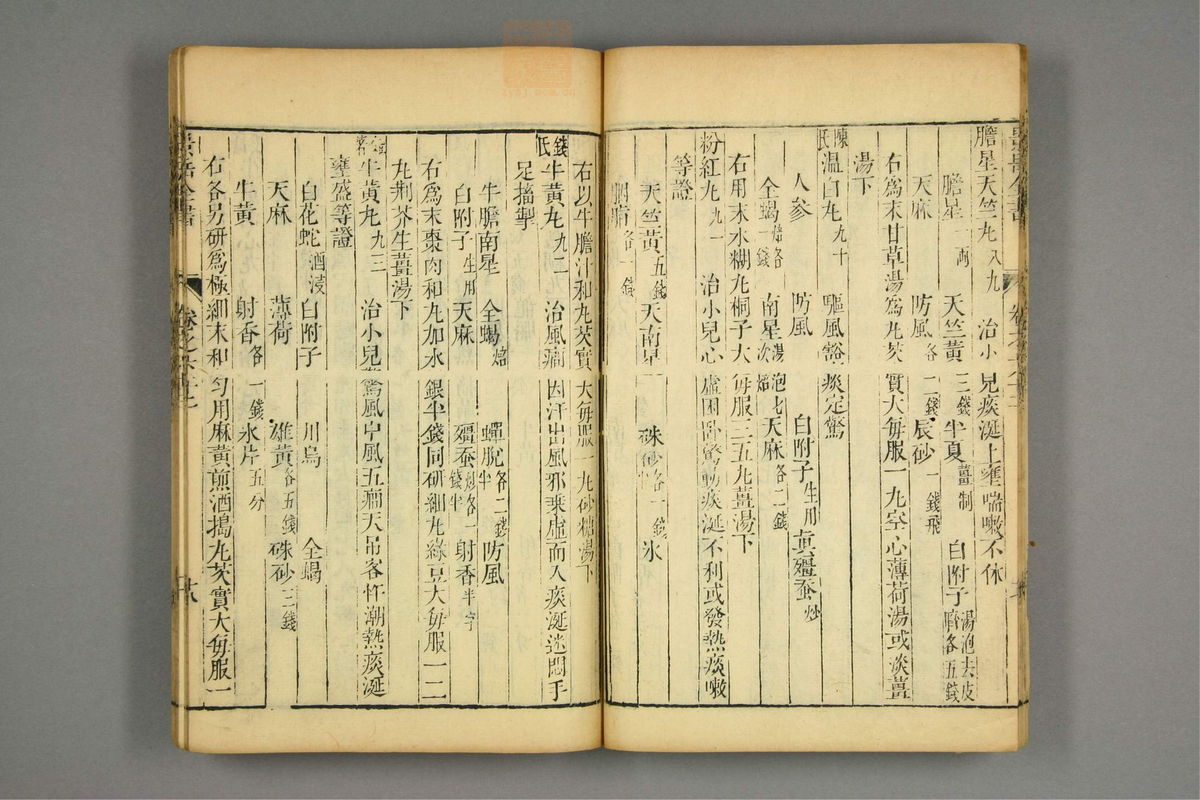 膽星天竺丸八九 治小兒痰涎上壅喘嗽不休
膽星一兩 天竺黃三錢 半夏薑制 白附子湯泡去皮臍各五錢
天麻 防風各二錢 辰砂一錢飛
右爲末甘草湯爲丸芡實大每服一丸空心薄荷湯或淡薑
湯下
陳氏溫白丸九十 驅風豁痰定驚
人參 防風 白附子生用 真殭蚕炒
全蝎焙各一錢 南星湯泡七次焙 天麻各二錢
右用末水糊丸桐子大每服三五丸薑湯下
粉紅丸九一 治小兒心虛困卧驚動痰涎不利或發熱痰嗽
等證
天竺黃五錢 天南星 硃砂各一錢 氷
胭脂各一錢
右以牛膽汁和丸芡實大每服一丸砂糖湯下
錢氏牛黃丸九二 治風癇因汗出風邪乘虛而入痰涎迷悶手
足搐掣
牛膽南星 全蝎焙 蟬脫各二錢半 防風
白附子生用 天麻 殭蚕炒各一錢半 射香半字
右爲末棗肉和丸加水銀半錢同研細丸綠豆大每服一二
丸荆芥生薑湯下
牛黃丸九三 治小兒驚風中風五癇天吊客忤潮熱痰涎
壅盛等證
白花蛇酒浸 白附子 川烏 全蝎
天麻 薄荷 雄黃各五錢 硃砂三錢
牛黃 射香各一錢 氷片五分
右各另研爲極細末和勻用麻黃煎酒搗丸芡實大每服一